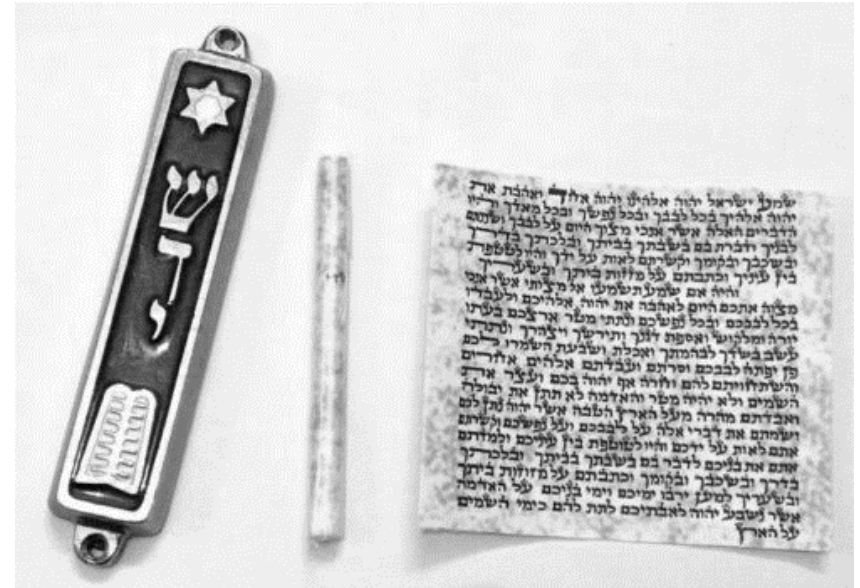 ש
ד
י
שמע ישראל יהוה אלהינו יהוה אחד ואהבת את
יהוה אלהיך בכל לבבך ובכל נפשך ובכל מאדך והיו
הדברים האלה אשר אנכי מצוך היום על לבבך ושננתם
לבניך ודברת בם בשבתך בביתך ובלכתך בדרך
ובשכבך ובקומך וקשרתם לאות על ידך והיו לטטפת
בין עיניך וכתבתם על מזוזות ביתך ובשעריך
והיה אם שמע תשמעו אל מצותי אשר אנכי
מצוה אתכם היום לאהבה את יהוה אלהיכם ולעבדו
בכל לבבכם ובכל נפשכם ונתתי מטר ארצכם בעתו
יורה ומלקוש ואספת דגנך ותירשך ויצהרך ונתתי
עשב בשדך לבהמתך ואכלת ושבעת השמרו לכם
פן יפתה לבבכם וסרתם ועבדתם אלהים אחרים
והשתחויתם להם וחרה אף יהוה בכם ועצר את
השמים ולא יהיה מטר והאדמה לא תתן את יבולה
ואבדתם מהרה מעל הארץ הטבה אשר יהוה נתן לכם
ושמתם את דברי אלה על לבבכם ועל נפשכם וקשרתם
אתם לאות על ידכם והיו לטוטפת בין עיניכם ולמדתם
אתם את בניכם לדבר בם בשבתך בביתך ובלכתך
בדרך ובשכבך ובקומך וכתבתם על מזוזות ביתך
ובשעריך למען ירבו ימיכם וימי בניכם על האדמה
אשר נשבע יהוה לאבתיכם לתת להם כימי השמים
על הארץ